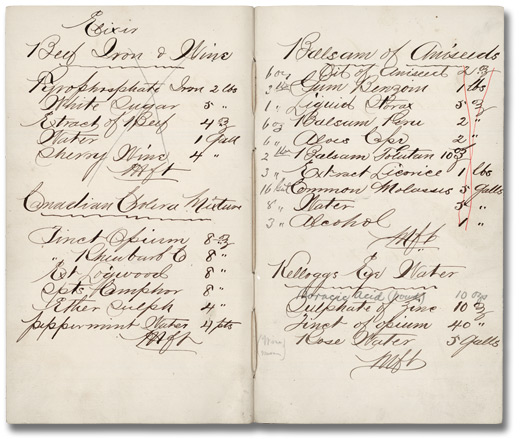 Elixir
Beef Iron & Wine
Pyrophosphate Iron 2 lbs
White Sugar 5 "
Extract of Beef 4 ℥
Water 1 Gall
Sherry Wine 4 "
Mft
Canadian Colera Mixture
Tinct Opium 8 ℥
" Rhubarb E 8 "
Ext Logwood 8 "
Spts Camphor 8 "
Ether Sulph 4 "
peppermint Water 4 pts
Mft
Balsam of Aniseeds
6 oz Oil of Aniseed 2 ℥
Gum Benzoin 1 lbs
1 " Liquid Storax 5 ℥
6 oz Balsam Peru 2 "
6 " Aloes Cape 2 "
2 lbs Balsam Tolutan 10 ℥
3 " Extract Licorice 1 lbs
16 Common Molasses 5 Galls
8 " Water 5 "
3 " Alcohol 1 "
Mft
Kelloggs Eye Water
Boracic Acid 10 ozs
Sulphate of Zinc 10 ℥
Tinct of opium 40 "
Rose Water 5 Galls
Mft